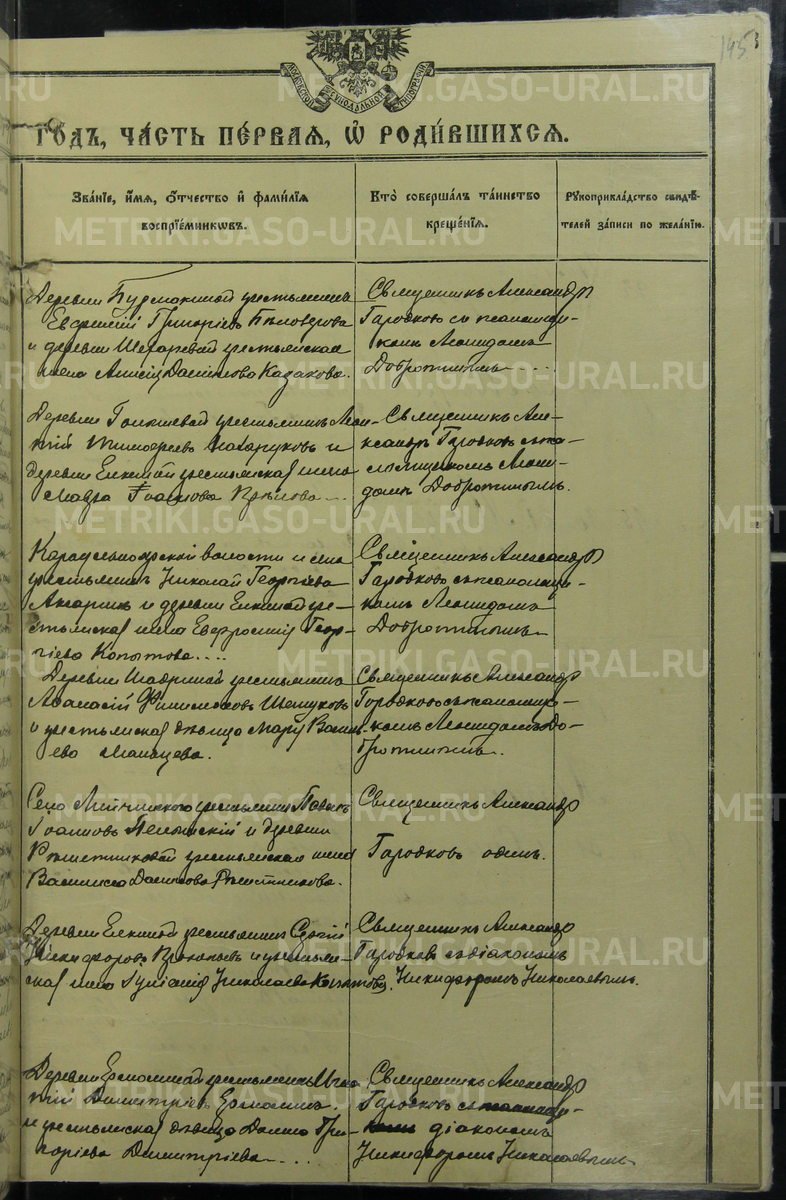 145
МОСКОВСКОЙ СѴНОДАЛЬНОЙ ТИПОГРАФІИ
METRIKI.GASO-URAL.RU
ГО́ДЪ, ЧА́СТЬ ПЕ́РВАЯ, Ѡ҆ РОДИ́ВШИХСЯ.
Зва́нїе, и҆́мя, ѻ҆́тчество и҆ фами́лїя воспрїе́мникѡвъ.
Кто̀ соверша́лъ та́инство креще́нїя.
Рꙋкоприкла́дство свидѣ́телей за́писи по жела́нїю.
Деревни крестьянинъ
Евфимій Григорьевъ
и деревни крестьянская
жена Данилова Казакова.
Священникъ Александръ
Городковъ съ псаломщи-
комъ Леонидомъ
Добротинымъ
Деревни крестьянинъ Леон-
тій Тимофеевъ и
деревни Елкиной крестьянская жена
Мавра Іоаннова Крылова
Священникъ Але-
ксандръ Городковъ съ пса-
ломщикомъ Леони-
домъ Добротинымъ.
волости и села
крестьянинъ Николай Георгіевъ
и деревни Елкиной кре-
стьянская жена Евфросинія Геор-
гіева Копытова....
Священникъ Александръ
Городковъ съ псаломщи-
комъ Леонидомъ
Добротинымъ
Деревни крестьянинъ
Афанасій
и крестьянская дѣвица Васи-
ева Мальцева.
Священникъ Александръ
Городковъ съ псаломщи-
комъ Леонидомъ До-
бротинымъ.
Села крестьянинъ Павелъ
Іоанновъ и деревни
Рѣшетниковой крестьянская жена
Василиса Данилова Рѣшетникова.
Священникъ Александръ
Городковъ одинъ.
Деревни Елкиной крестьянинъ Сергій
Никифоровъ и крестьян-
ская жена Іуліанія Николаева Копытова.
Священникъ Александръ
Городковъ съ діакономъ
Никифоромъ Николаевымъ.
Деревни Ермолиной крестьянинъ Игна-
тій Димитріевъ Ермолинъ.
и крестьянская дѣвица Гри-
горіева Димитріева
Священникъ Александръ
Городковъ съ
діакономъ
Никифоромъ Николаевымъ